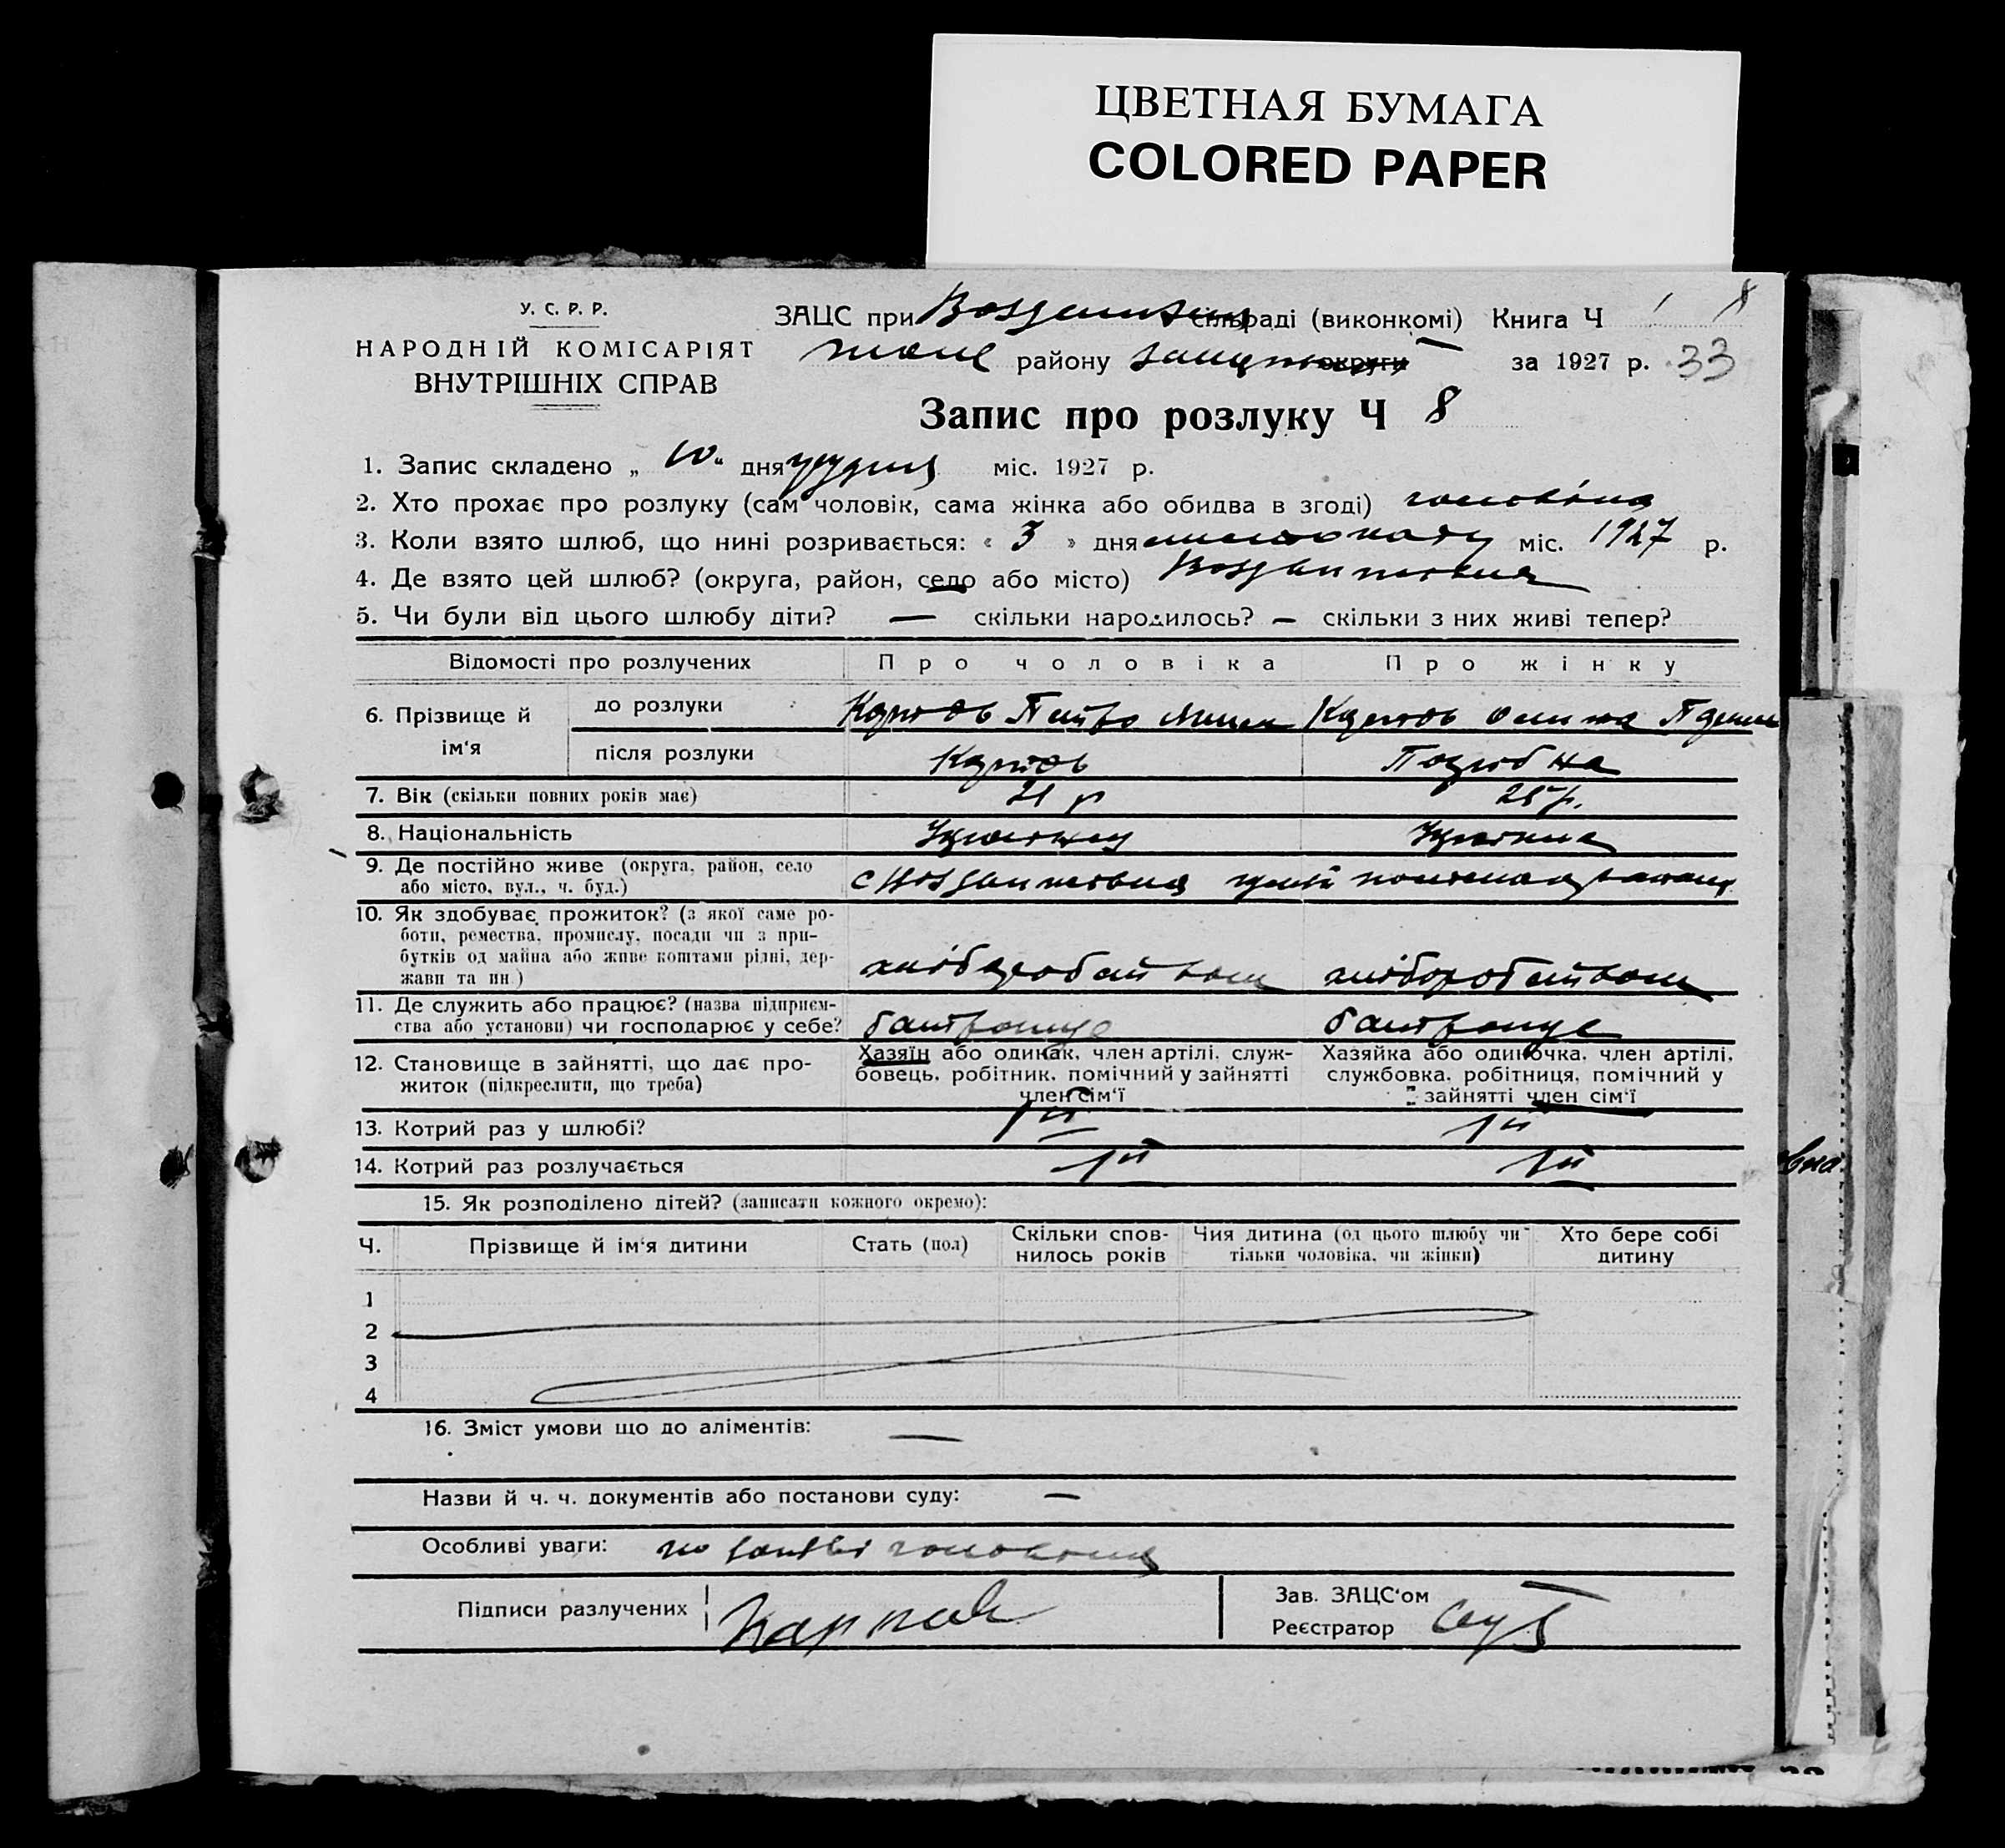 ЦВЕТНАЯ БУМАГА
COLORED PAPER
У. С. Р. Р.
НАРОДНІЙ КОМІСАРІЯТ
ВНУТРІШНІХ СПРАВ
ЗАЦС при сільраді (виконкомі) Книга Ч
району округи за 1927 р. 33
Запис про розлуку Ч 8
1. Запис складено „ 10 “ дня грудня міс. 1927 р.
2. Хто прохає про розлуку (сам чоловік, сама жінка або обидва в згоді) чоловіка
3. Коли взято шлюб, що нині розривається: « 3 » дня листопаду міс. 1927 р.
4. Де взято цей шлюб? (округа, район, село або місто)
5. Чи були від цього шлюбу діти? — скільки народилось? — скільки з них живі тепер?
Відомості про розлучених Про чоловіка Про жінку
6. Прізвище й ім‘я
до розлуки Карпов Петро Карпов
після розлуки Карпов
7. Вік (скільки повних років має) 21 р 25 р.
8. Національність
9. Де постійно живе (округа, район, село
або місто, вул., ч. буд.)
10. Як здобуває прожиток? (з якої саме ро-
боти, ремества, промислу, посади чи з при-
бутків од майна або живе коштами рідні, дер-
жави та ин.) хліборобством хліборобством
11. Де служить або працює? (назва підприєм-
ства або установи) чи господарює у себе?
12. Становище в зайнятті, що дає про-
житок (підкреслити, що треба)
Хазяїн або одинак, член артілі, служ-
бовець, робітник, помічний у зайнятті
член сім‘ї
Хазяйка або одиночка, член артілі,
службовка, робітниця, помічний у
зайнятті член сім‘ї
13. Котрий раз у шлюбі? 1й 1й
14. Котрий раз розлучається 1й 1й
15. Як розподілено дітей? (записати кожного окремо):
Ч. Прізвище й ім‘я дитини Стать (пол) Скільки спов-
нилось років Чия дитина (од цього шлюбу чи
тільки чоловіка, чи жінки) Хто бере собі
дитину
1
2
3
4
16. Зміст умови що до аліментів: —
Назви й ч. ч. документів або постанови суду: —
Особливі уваги: по заяві чоловіка
Підписи разлучених Карпов
Зав. ЗАЦС‘ом
Реєстратор